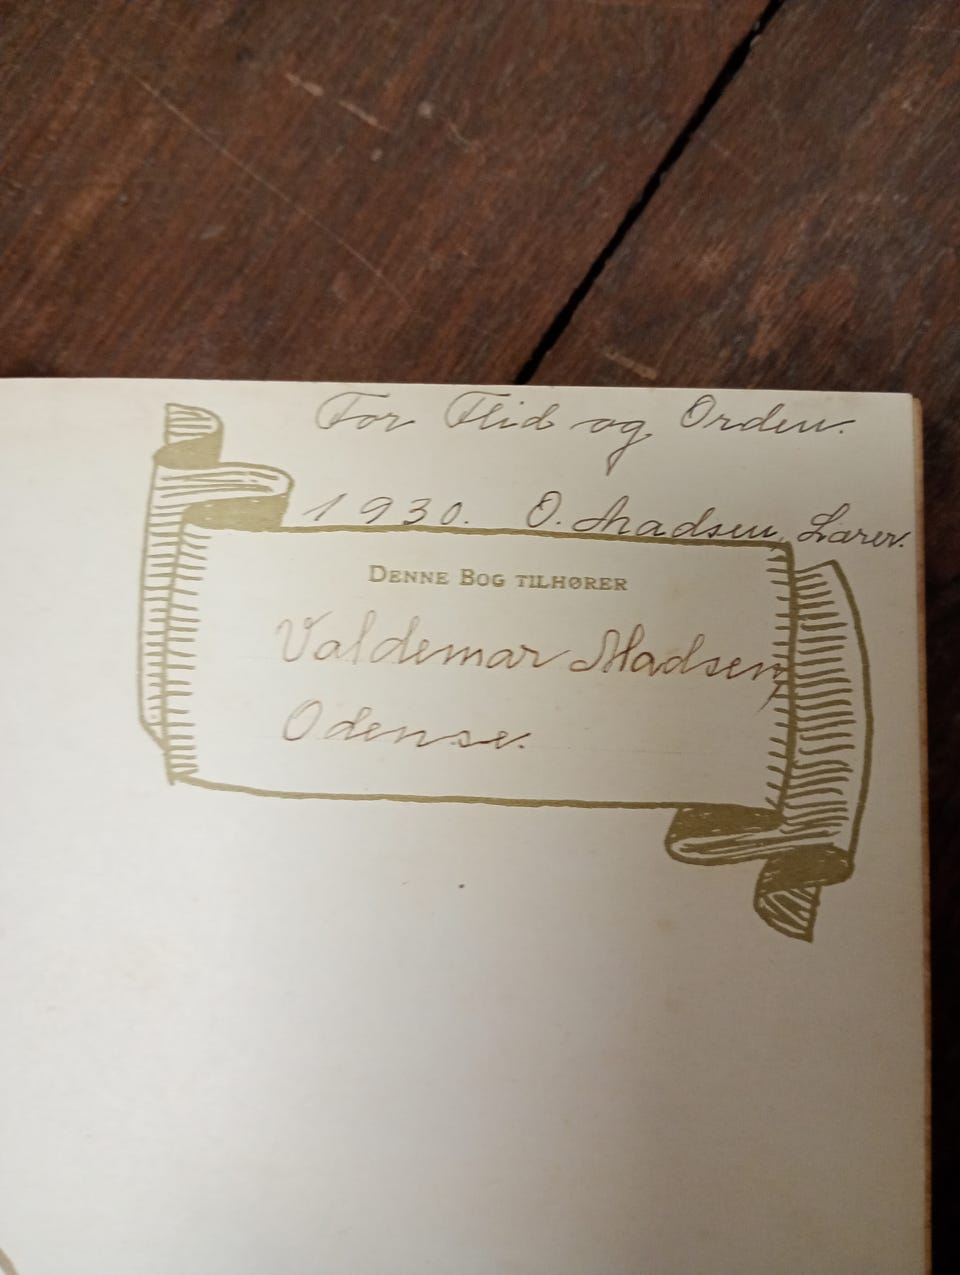 For Flid og Orden.
1930. O. Madsen, Lærer.
DENNE BOG TILHØRER
Valdemar Madsen,
Odense.